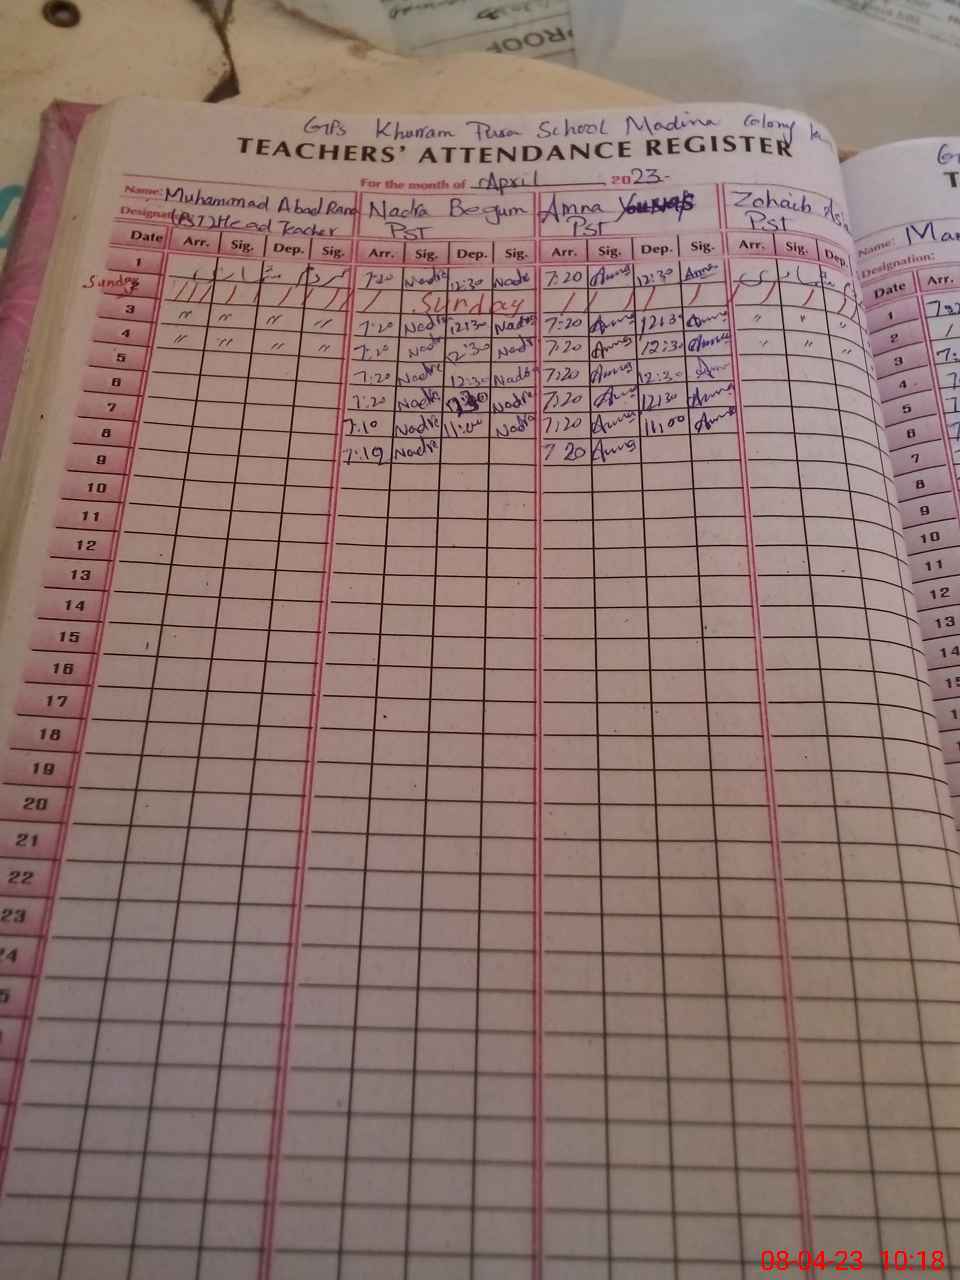 PROOF
GPS Khurram Pura School Madina Colony
TEACHERS' ATTENDANCE REGISTER
For the month of April 2023
Name: Muhammad Abad Rana Nadra Begum Amna Younas Zohaib
Designation: (PST) Head Teacher PST PST PST
Date Arr. Sig. Dep. Sig. Arr. Sig. Dep. Sig. Arr. Sig. Dep. Sig. Arr. Sig. Dep.
1 7:20 Nadra 12:30 Nadra 7:20 Amna 12:30 Amna
Sunday Sunday
3 〃 〃 〃 〃 7:20 Nadra 12:30 Nadra 7:20 Amna 12:30 Amna 〃 〃 〃
4 〃 〃 〃 〃 7:20 Nadra 12:30 Nadra 7:20 Amna 12:30 Amna 〃 〃 〃
5 7:20 Nadra 12:30 Nadra 7:20 Amna 12:30 Amna
6 7:20 Nadra Nadra 7:20 Amna 12:30 Amna
7 7:10 Nadra 11:00 Nadra 7:20 Amna 11:00 Amna
8 7:19 Nadra 7 20 Amna
9
10
11
12
13
14
15
16
17
18
19
20
21
22
23
Name: Ma
Designation:
Date Arr.
1
2
3
4
5
6
7
8
9
10
11
12
13
14
08-04-23 10:18